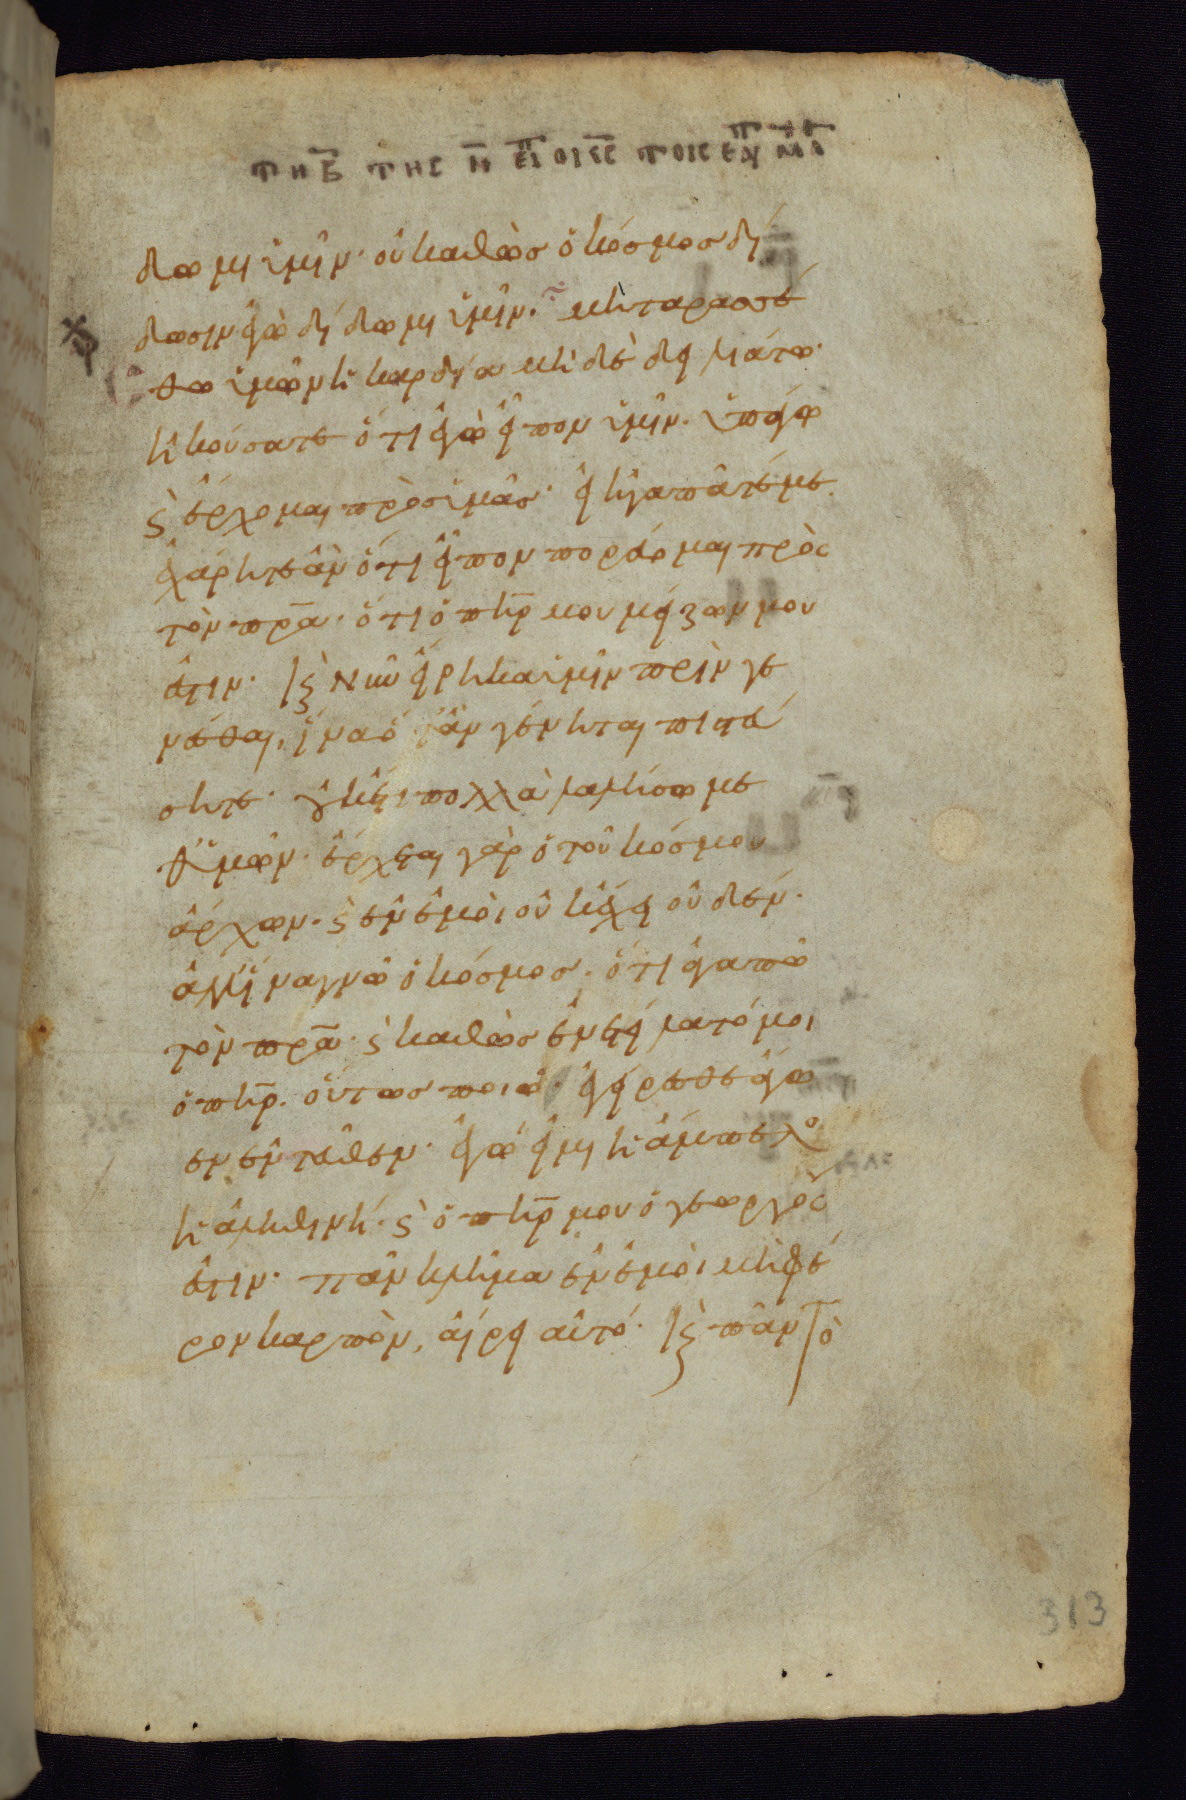 τῇ β τῆς η εἶ ὁ ις τοῖς
δωμι ὑμῖν· οὐ καθὼς ὁ κόσμος δί
δωσιν ἐγὼ δίδωμι ὑμῖν· μὴ ταρασσέ
θω ὑμῶν ἡ καρδία μὴ δὲ δειλιάτω·
ἠκούσατε ὅτι ἐγὼ εἶπον ὑμῖν· ὑπάγω
ϛ ἔρχομαι πρὸς ὑμᾶς· εἰ ἠγαπᾶτέ με
ἐχάρητε ἂν ὅτι εἶπον πορεύομαι πρὸς
τὸν πρ̅α· ὅτι ὁ πη̅ρ μου μείζων μου
ἐστιν· ϛ νῦν εἴρηκα ὑμῖν πρὶν γε
νέσθαι, ἵνα ὅταν γένηται πιστεύ
σητε· οὐκέτι πολλὰ λαλήσω με
θ' ὑμῶν· ἔρχεται γὰρ ὁ τοῦ κόσμου
ἄρχων· ϛ ἐν ἐμοὶ οὐκ ἔχει οὐδέν·
ἀλλ' ἵνα γνῶ ὁ κόσμος· ὅτι ἀγαπῶ
τὸν πρ̅α· ϛ καθὼς ἐνετείλατό μοι
ὁ πη̅ρ· οὕτως ποιῶ· ἐγείρεσθε ἄγω
μεν ἐντεῦθεν· ἐγώ εἰμι ἡ ἄμπελος
ἡ ἀληθινή· ϛ ὁ πη̅ρ μου ὁ γεωργός
ἐστιν· πᾶν κλῆμα ἐν ἐμοὶ μὴ φέ
ρον καρπὸν, αἴρει αὐτό· ϛ πᾶν τὸ
313